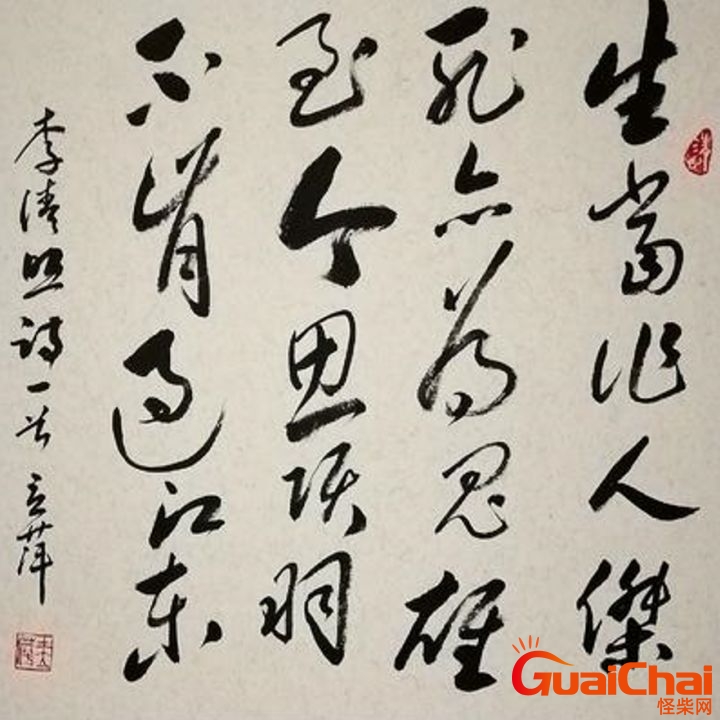 生當作人傑
死亦为鬼雄
至今思项羽
不肯过江东
李清照诗一首 立萍
GuaiChai
怪柴网